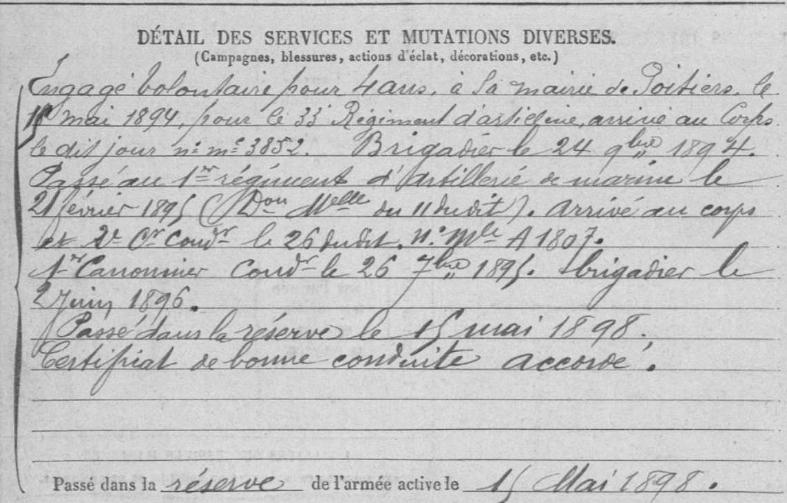 DÉTAIL DES SERVICES ET MUTATIONS DIVERSES.
(Campagnes, blessures, actions d'éclat, décorations, etc.)
Engagé volontaire pour 4 ans, à la mairie de Poitiers, le
15 mai 1894, pour le 33e Régiment d'artillerie, arrivé au Corps
le dit jour n° mle 3852. Brigadier le 24 9bre 1894.
Passé au 1er régiment d'artillerie de marine le
21 février 1895 (Don Melle du 11 dudit). Arrivé au corps
et 2e Cr Condr le 26 dudit. N° Mle A 1807.
1er Canonnier Condr le 26 7bre 1895. brigadier le
2 juin 1896.
Passé dans la réserve le 15 mai 1898.
Certificat de bonne conduite accordé.
Passé dans la réserve de l'armée active le 15 Mai 1898.